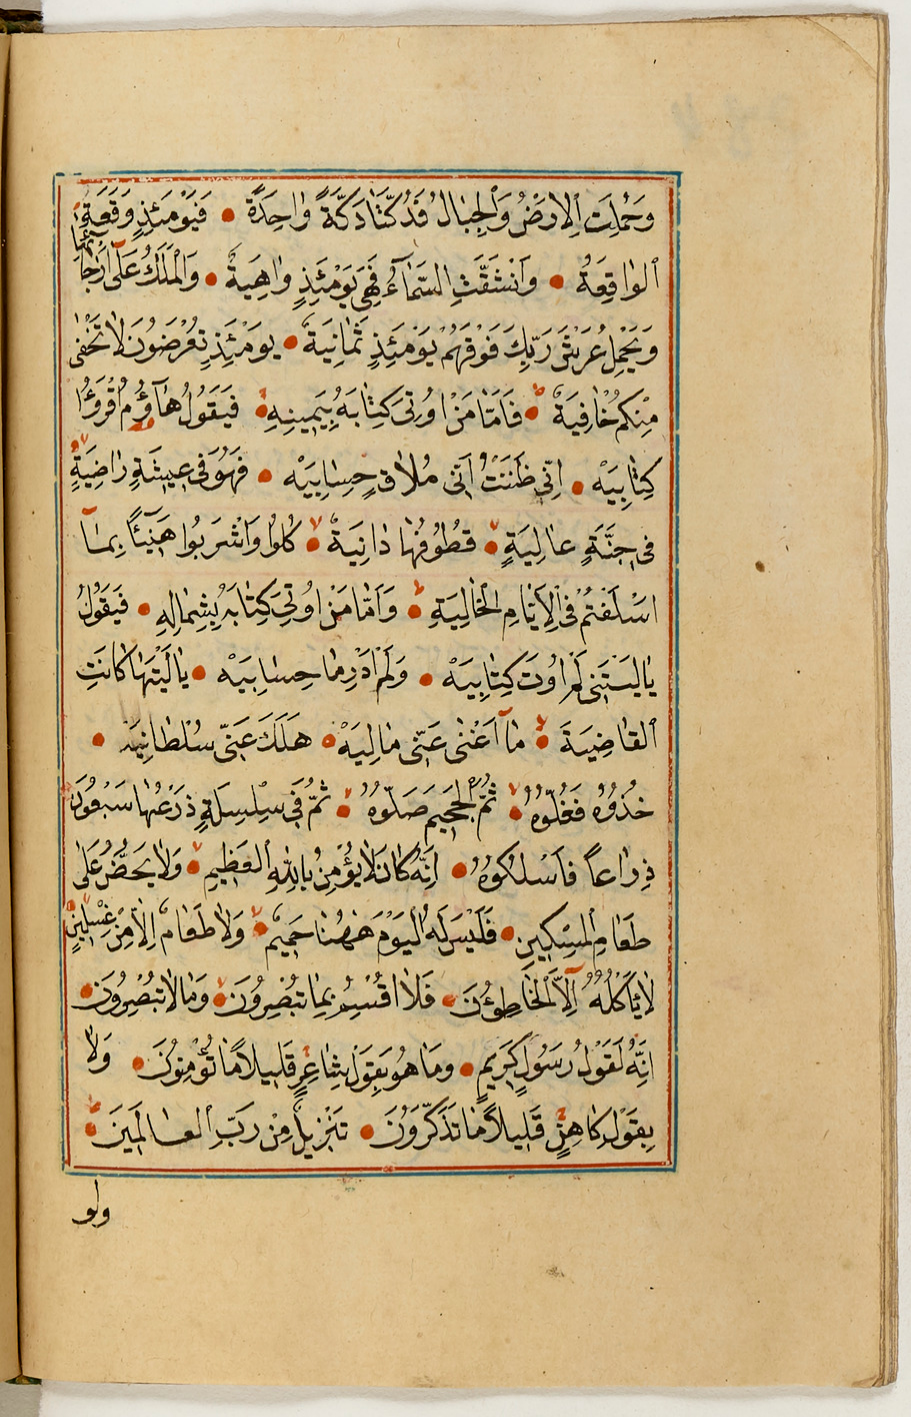 وَحُمِلَتِ ٱلْاَرْضُ وَالْجِبَالُ فَدُكَّتَا دَكَّةً وَاحِدَةً • فَيَوْمَئِذٍ وَقَعَتِ
ٱلْوَاقِعَةُ • وَانْشَقَّتِ السَّمَآءُ فَهِىَ يَوْمَئِذٍ وَاهِيَةٌ • وَالْمَلَكُ عَلٰٓى اَرْجَآئِهَا
وَيَحْمِلُ عَرْشَ رَبِّكَ فَوْقَهُمْ يَوْمَئِذٍ ثَمَانِيَةٌ • يَوْمَئِذٍ تُعْرَضُونَ لَا تَخْفٰى
مِنْكُمْ خَافِيَةٌ • فَاَمَّا مَنْ اُوتِىَ كِتَابَهُ بِيَمِينِهِ • فَيَقُولُ هَآؤُمُ اقْرَؤُا
كِتَابِيَهْ • اِنِّى ظَنَنْتُ اَنِّى مُلَاقٍ حِسَابِيَهْ • فَهُوَ فِى عِيشَةٍ رَاضِيَةٍ
فِى جَنَّةٍ عَالِيَةٍ • قُطُوفُهَا دَانِيَةٌ • كُلُوا وَاشْرَبُوا هَنِيٓئًا بِمَآ
اَسْلَفْتُمْ فِى الْاَيَّامِ الْخَالِيَةِ • وَاَمَّا مَنْ اُوتِىَ كِتَابَهُ بِشِمَالِهِ • فَيَقُولُ
يَالَيْتَنِى لَمْ اُوتَ كِتَابِيَهْ • وَلَمْ اَدْرِ مَا حِسَابِيَهْ • يَالَيْتَهَا كَانَتِ
ٱلْقَاضِيَةَ • مَآ اَغْنٰى عَنِّى مَالِيَهْ • هَلَكَ عَنِّى سُلْطَانِيَهْ •
خُذُوهُ فَغُلُّوهُ • ثُمَّ الْجَحِيمَ صَلُّوهُ • ثُمَّ فِى سِلْسِلَةٍ ذَرْعُهَا سَبْعُونَ
ذِرَاعًا فَاسْلُكُوهُ • اِنَّهُ كَانَ لَا يُؤْمِنُ بِاللّٰهِ ٱلْعَظِيمِ • وَلَا يَحُضُّ عَلٰى
طَعَامِ الْمِسْكِينِ • فَلَيْسَ لَهُ الْيَوْمَ هٰهُنَا حَمِيمٌ • وَلَا طَعَامٌ اِلَّا مِنْ غِسْلِينٍ
لَا يَاْكُلُهُٓ اِلَّا الْخَاطِؤُنَ • فَلَٓا اُقْسِمُ بِمَا تُبْصِرُونَ • وَمَا لَا تُبْصِرُونَ •
اِنَّهُ لَقَوْلُ رَسُولٍ كَرِيمٍ • وَمَا هُوَ بِقَوْلِ شَاعِرٍ قَلِيلًا مَا تُؤْمِنُونَ • وَلَا
بِقَوْلِ كَاهِنٍ قَلِيلًا مَا تَذَكَّرُونَ • تَنْزِيلٌ مِنْ رَبِّ ٱلْعَالَمِينَ •
ولو